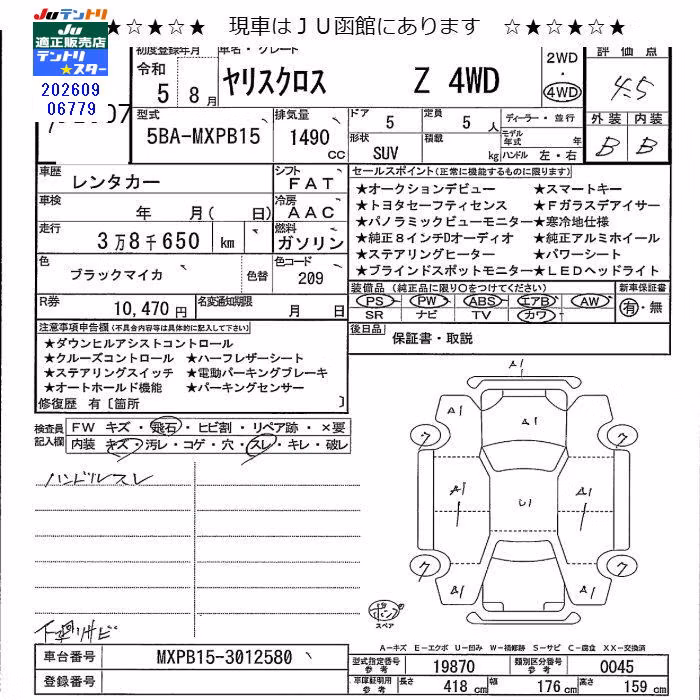 ★☆★☆ 現車はＪＵ函館にあります ☆★☆★☆
Juテントリ
JU
適正販売店
テントリ
★スター
202609
06779
初度登録年月
令和
5 8月
車名・グレード
ヤリスクロス Z 4WD
2WD
・
4WD
評価点
4.5
外装 内装
B B
型式
5BA-MXPB15
排気量
1490
CC
ドア
5
定員
5人
形状
SUV
積載
kg
ディーラー・並行
モデル年式 年
ハンドル 左・右
車歴
レンタカー
シフト
FAT
車検
年 月( 日)
冷房
AAC
走行
3万8千650 km
燃料
ガソリン
色
ブラックマイカ
色替
色コード
209
R券
10,470円
名変通知期限
月 日
セールスポイント(正常に機能するものに限ります)
★オークションデビュー ★スマートキー
★トヨタセーフティセンス ★Fガラスデアイサー
★パノラミックビューモニター★寒冷地仕様
★純正8インチDオーディオ ★純正アルミホイール
★ステアリングヒーター ★パワーシート
★ブラインドスポットモニター★LEDヘッドライト
装備品 (純正品に限り○をつけてください)
PS PW ABS エアB AW
SR ナビ TV カワ
新車保証書
有・無
後日品
保証書・取説
注意事項申告欄(不具合内容等は具体的に記入して下さい)
★ダウンヒルアシストコントロール
★クルーズコントロール ★ハーフレザーシート
★ステアリングスイッチ ★電動パーキングブレーキ
★オートホールド機能 ★パーキングセンサー
修復歴 有〔箇所 〕
検査員記入欄
FW キズ・飛石・ヒビ割・リペア跡・×要
内装 キズ・汚レ・コゲ・穴・スレ・キレ・破レ
ハンドルスレ
下廻リサビ
A1
A1 A1 A1
ワ ワ
A1 U1 A1
ワ ワ
A1 A1
スペア
A-キズ E-エクボ U-凹み W-補修跡 S-サビ C-腐食 XX-交換済
車台番号
MXPB15-3012580
登録番号
型式指定番号
参考
19870
類別区分番号
参考
0045
車庫証明用
参考
長さ 418cm 幅 176cm 高さ 159cm